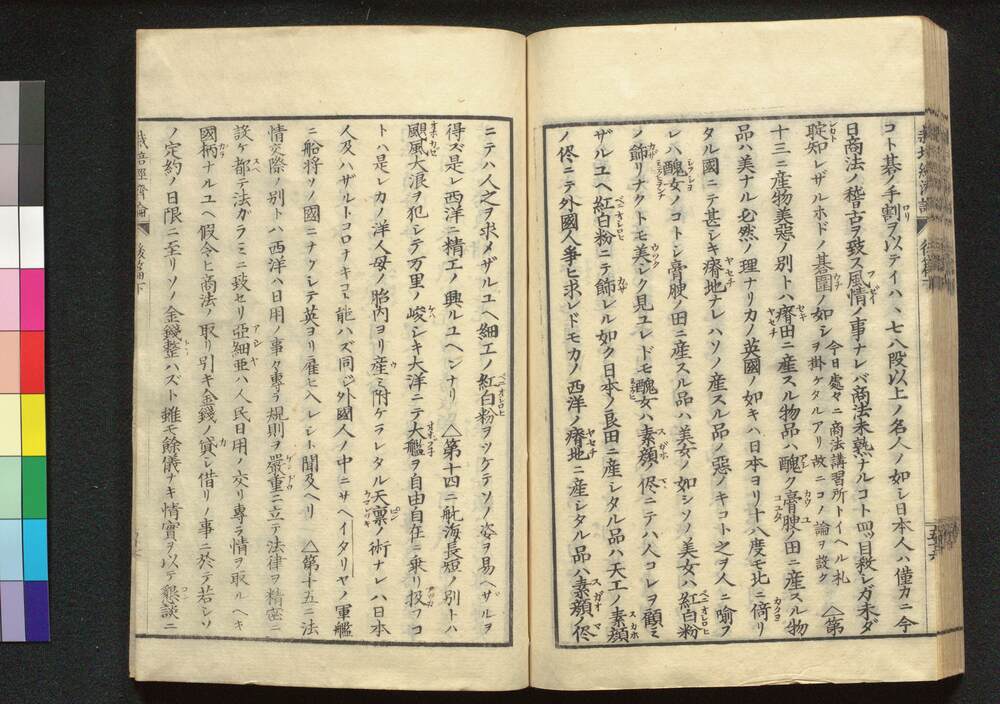 コト碁ノ手割ヲ以テイハヽ七八段以上ノ名人ノ如シ日本人ハ僅カニ今
日商法ノ稽古ヲ致ス風情ノ事ナレバ商法未熟ナルコト四ツ目殺シガ未ダ
聢知レザルホドノ碁圍ノ如シ今日處々ニ商法講習所トイヘル札ヲ掛ケタルアリ故ニコノ論ヲ設ク △第
十三ニ産物美惡ノ別トハ瘠田ニ産スル物品ハ醜ク膏腴ノ田ニ産スル物
品ハ美ナル必然ノ理ナリカノ英國ノ如キハ日本ヨリ十八度モ北ニ倚リ
タル國ニテ甚シキ瘠地ナレハソノ産スル品ノ惡ノキコト之ヲ人ニ喩フ
レハ醜女ノコトシ膏腴ノ田ニ産スル品ハ美女ノ如シソノ美女ハ紅白粉
ノ飾リナクトモ美シク見ユレドモ醜女ハ素顔ノ侭ニテハ人コレヲ顧ミ
ザルユヘ紅白粉ニテ飾レル如ク日本ノ良田ニ産シタル品ハ天工ノ素顔
ノ侭ニテ外國人爭ヒ求レドモカノ西洋ノ瘠地ニ産シタル品ハ素顔ノ侭
ニテハ人之ヲ求メザルユヘ細工ノ紅白粉ヲツケテソノ姿ヲ易ヘザルヲ
得ズ是レ西洋ニ精工ノ興ルユヘンナリ △第十四ニ航海長短ノ別トハ
颶風大浪ヲ犯シテ万里ノ峻シキ大洋ニテ大艦ヲ自由自在ニ乗リ扱フコ
トハ是レカノ洋人母ノ胎内ヨリ産ミ附ケラレタル天禀ノ術ナレハ日本
人及ハザルトコロナキコト能ハズ同ジ外國人ノ中ニサヘイタリヤノ軍艦
ニ船将ソノ國ニナクシテ英ヨリ雇ヒ入レシト聞及ヘリ △第十五ニ法
情交際ノ別トハ西洋ハ日用ノ事々專ラ規則ヲ嚴重ニ立テ法律ヲ精密ニ
設ケ都テ法ガラミニ致セリ亞細亜ハ人民日用ノ交リ專ラ情ヲ取ルヘキ
國柄ナルユヘ假令ヒ商法ノ取リ引キ金錢ノ貸シ借リノ事ニ於テ若シソ
ノ定約ノ日限ニ至リソノ金錢整ハズト雖モ餘儀ナキ情實ヲ以テ懇談ニ
栽培經濟論 後編下